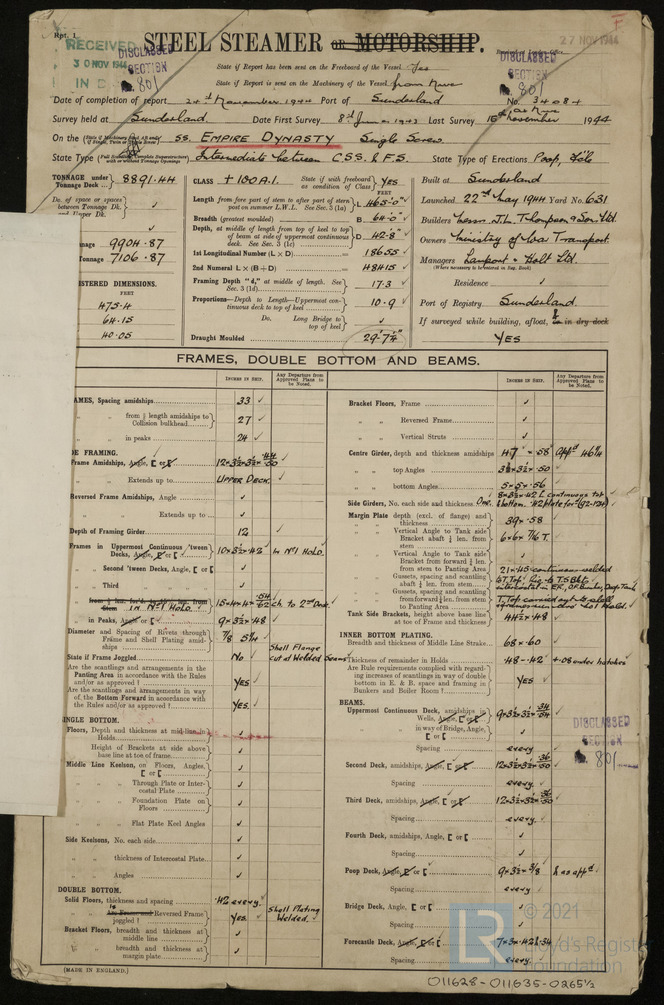 Rpt. 1.
RECEIVED
30 NOV 1944
IN D
DISCLASSED
SECTION
No. 801
STEEL STEAMER OR MOTORSHIP.
27 NOV 1944
DISCLASSED
SECTION
No. 801
State if Report has been sent on the Freeboard of the Vessel Yes
State if Report is sent on the Machinery of the Vessel from
Date of completion of report 24th November 1944 Port of Sunderland No. 34084
Survey held at Sunderland Date First Survey 8th June 1943 Last Survey 16th November 1944
On the SS. EMPIRE DYNASTY Single Screw
State Type Intermediate between C.S.S. & F.S. State Type of Erections Poop, F'cle
TONNAGE under Tonnage Deck ... 8891.44
Do. of space or spaces between Tonnage Dk. and Upper Dk.
nnage 9904.87
Tonnage 7106.87
ISTERED DIMENSIONS.
FEET
475.4
64.15
40.05
CLASS +100A.1. State if with freeboard as condition of Class YES
FEET
Length from fore part of stem to after part of stern post on summer L.W.L. See Sec. 3 (1a) L 465'-0"
Breadth (greatest moulded) B 64'-0"
Depth, at middle of length from top of keel to top of beam at side of uppermost continuous deck. See Sec. 3 (1c) D 42'-8"
1st Longitudinal Number (L × D) 18655
2nd Numeral L × (B + D) 48415
Framing Depth "d," at middle of length. See Sec. 3 (1d) 17.3
Proportions—Depth to Length—Uppermost continuous deck to top of keel 10.9
Do. Long Bridge to top of keel
Draught Moulded 29'-7¼"
Built at Sunderland
Launched 22nd May 1944 Yard No. 631
Builders Messrs J.L. Thompson & Sons Ltd
Owners Ministry of War Transport
Managers Lamport & Holt Ltd.
(Where necessary to be entered in Reg. Book)
Residence
Port of Registry Sunderland
If surveyed while building, afloat, & or in dry dock
YES
FRAMES, DOUBLE BOTTOM AND BEAMS.
INCHES IN SHIP.
Any Departure from Approved Plans to be Noted.
INCHES IN SHIP.
Any Departure from Approved Plans to be Noted.
AMES, Spacing amidships 33
" " from ⅗ length amidships to Collision bulkhead 27
" " in peaks 24
DE FRAMING.
Frame Amidships, Angle, [ or
" " Extends up to UPPER DECK.
Reversed Frame Amidships, Angle
" " Extends up to
Depth of Framing Girder 12
Frames in Uppermost Continuous 'tween Decks, Angle, [ or 10×3½×.42 in No1 HOLD
" Second 'tween Decks, Angle, [ or
" Third
IN No1 HOLD
" in Peaks, Angle, [ or 9×3½×.48
Diameter and Spacing of Rivets through Frame and Shell Plating amidships ⅞
State if Frame Joggled No Shell Flange cut at Welded Seams
Are the scantlings and arrangements in the Panting Area in accordance with the Rules and/or as approved? YES
Are the scantlings and arrangements in way of the Bottom Forward in accordance with the Rules and/or as approved? YES
INGLE BOTTOM.
Floors, Depth and thickness at mid-line in Holds
Height of Brackets at side above base line at toe of frame
Middle Line Keelson, on Floors, Angles, [ or [
" " Through Plate or Intercostal Plate
" " Foundation Plate on Floors
" " Flat Plate Keel Angles
Side Keelsons, No. each side
" " thickness of Intercostal Plate
" " Angles
DOUBLE BOTTOM.
Solid Floors, thickness and spacing .42 every
" " Is Reversed Frame joggled? YES Shell Plating Welded.
Bracket Floors, breadth and thickness at middle line
" " breadth and thickness at margin plate
Bracket Floors, Frame
" " Reversed Frame
" " Vertical Struts
Centre Girder, depth and thickness amidships 47 × .58 Appd 46
" " top Angles 3½×3½×.50
" " bottom Angles 5×5×.56
Side Girders, No. each side and thickness One.
Margin Plate depth (excl. of flange) and thickness 39×.58
" " Vertical Angle to Tank side Bracket abaft ¼ len. from stem 6×6×7/16 T.
" " Vertical Angle to Tank side Bracket from forward ¼ len. from stem to Panting Area
" " Gussets, spacing and scantling abaft ¼ len. from stem
" " Gussets, spacing and scantling from forward ¼ len. from stem to Panting Area
Tank Side Brackets, height above base line at toe of Frame and thickness 44½×.48
INNER BOTTOM PLATING.
Breadth and thickness of Middle Line Strake 68×.60
Thickness of remainder in Holds .48-.42 +.08 under hatches
Are Rule requirements complied with regarding increases of scantlings in way of double bottom in E. & B. space and framing in Bunkers and Boiler Room? YES
BEAMS.
Uppermost Continuous Deck, amidships in Wells, Angle, [ or
" " in way of Bridge, Angle, [ or [
Spacing every
Second Deck, amidships, Angle, [ or
Spacing every
Third Deck, amidships, Angle, [ or
Spacing every
Fourth Deck, amidships, Angle, [ or [
Spacing
Poop Deck, Angle, [ or 9×3½×⅜ h as appd
Spacing every
Bridge Deck, Angle, [ or [
Spacing
Forecastle Deck, Angle, [ or [
Spacing every
DISCLASSED
SECTION
No. 801
(MADE IN ENGLAND.)
LR © 2021
Lloyd's Register
Foundation
011628-011635-0265½